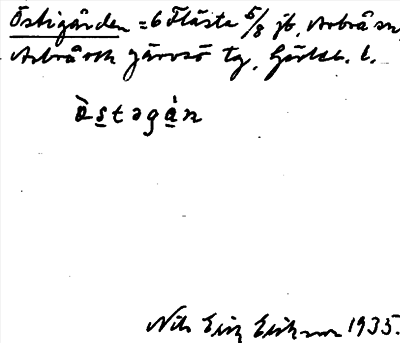 Östigården = 6 Flästa 5/8 jb, Arbrå sn,
Arbrå och Järvsö tg, Gävleb. l.
Östəgån
Nils Eric Erikson 1935.